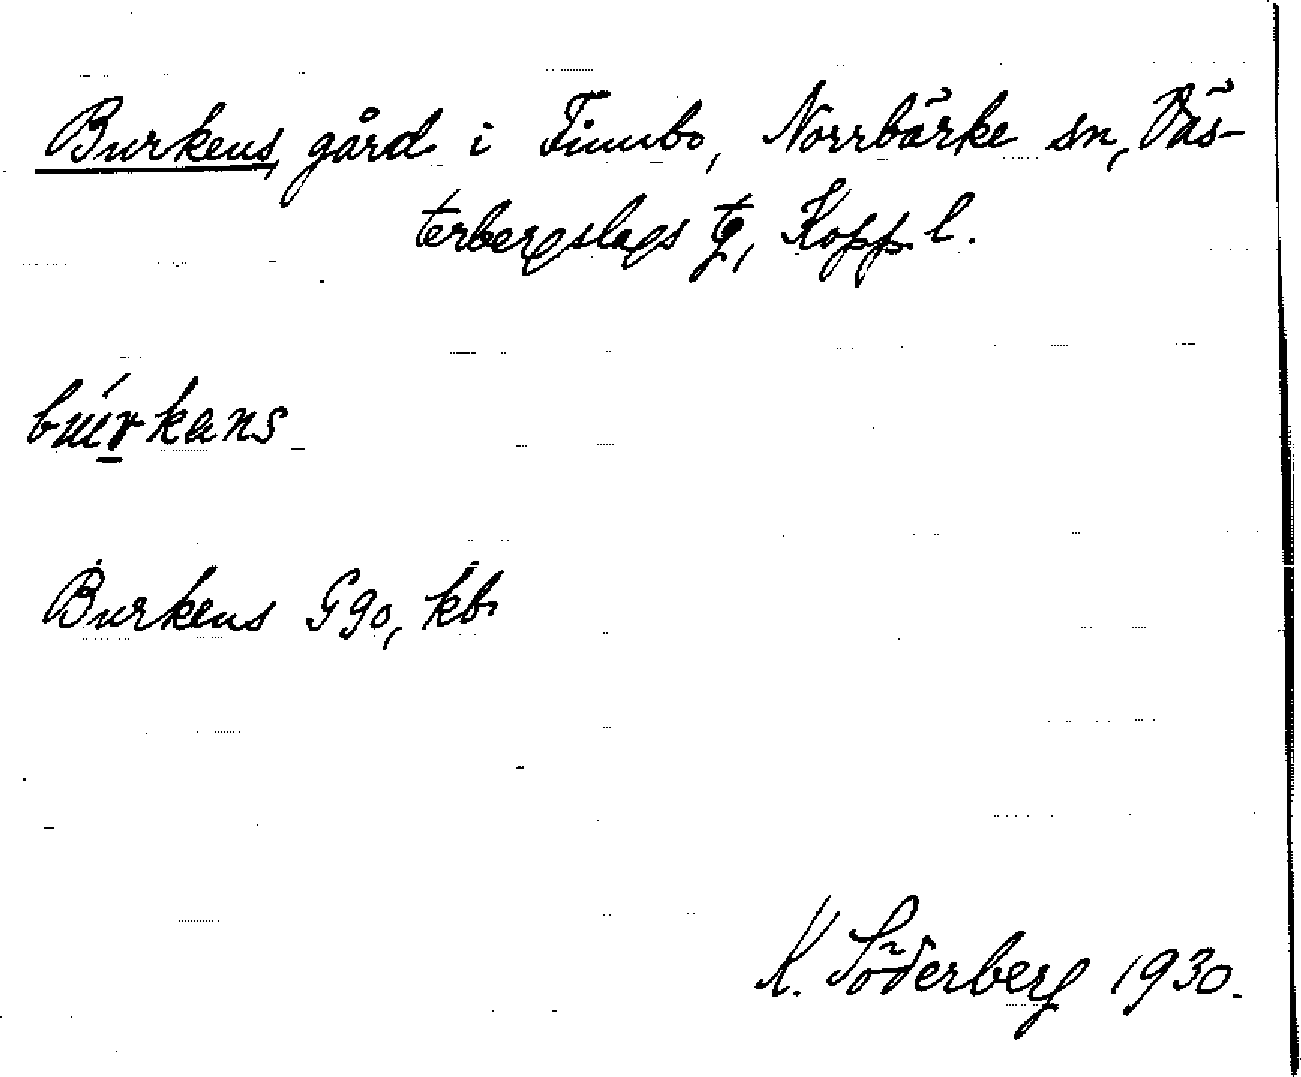 Burkens, gård i Finnbo, Norrbärke sn, Väs-
terbergslags tg, Kopp. l.
búrkans
Burkens Ggo, kb
K. Söderberg 1930.